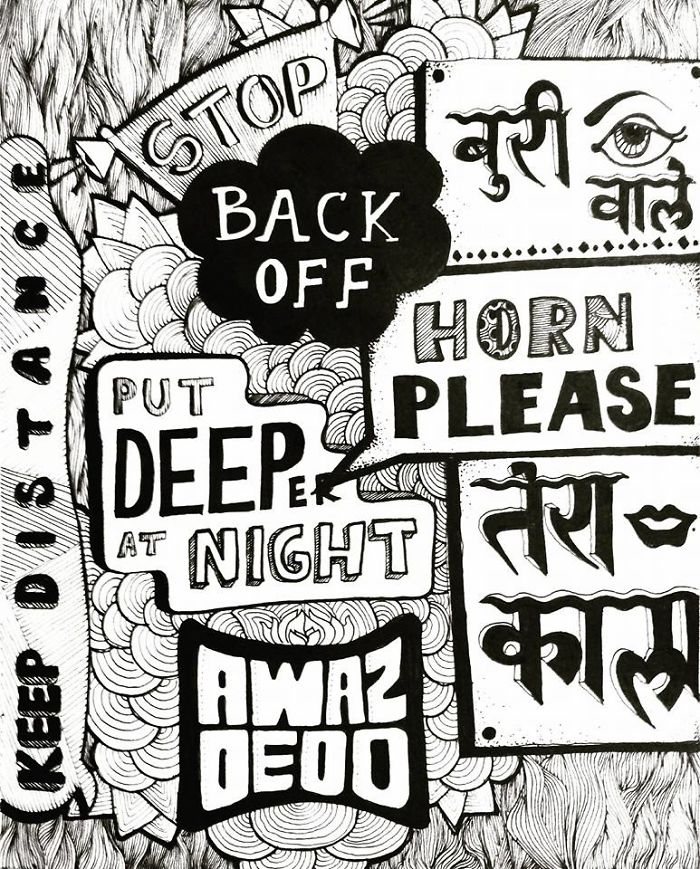 STOP
BACK
OFF
बुरी
वाले
HORN
PLEASE
KEEP DISTANCE
PUT
DEEPER
AT NIGHT
तेरा
काला
AWAZ
DEDO